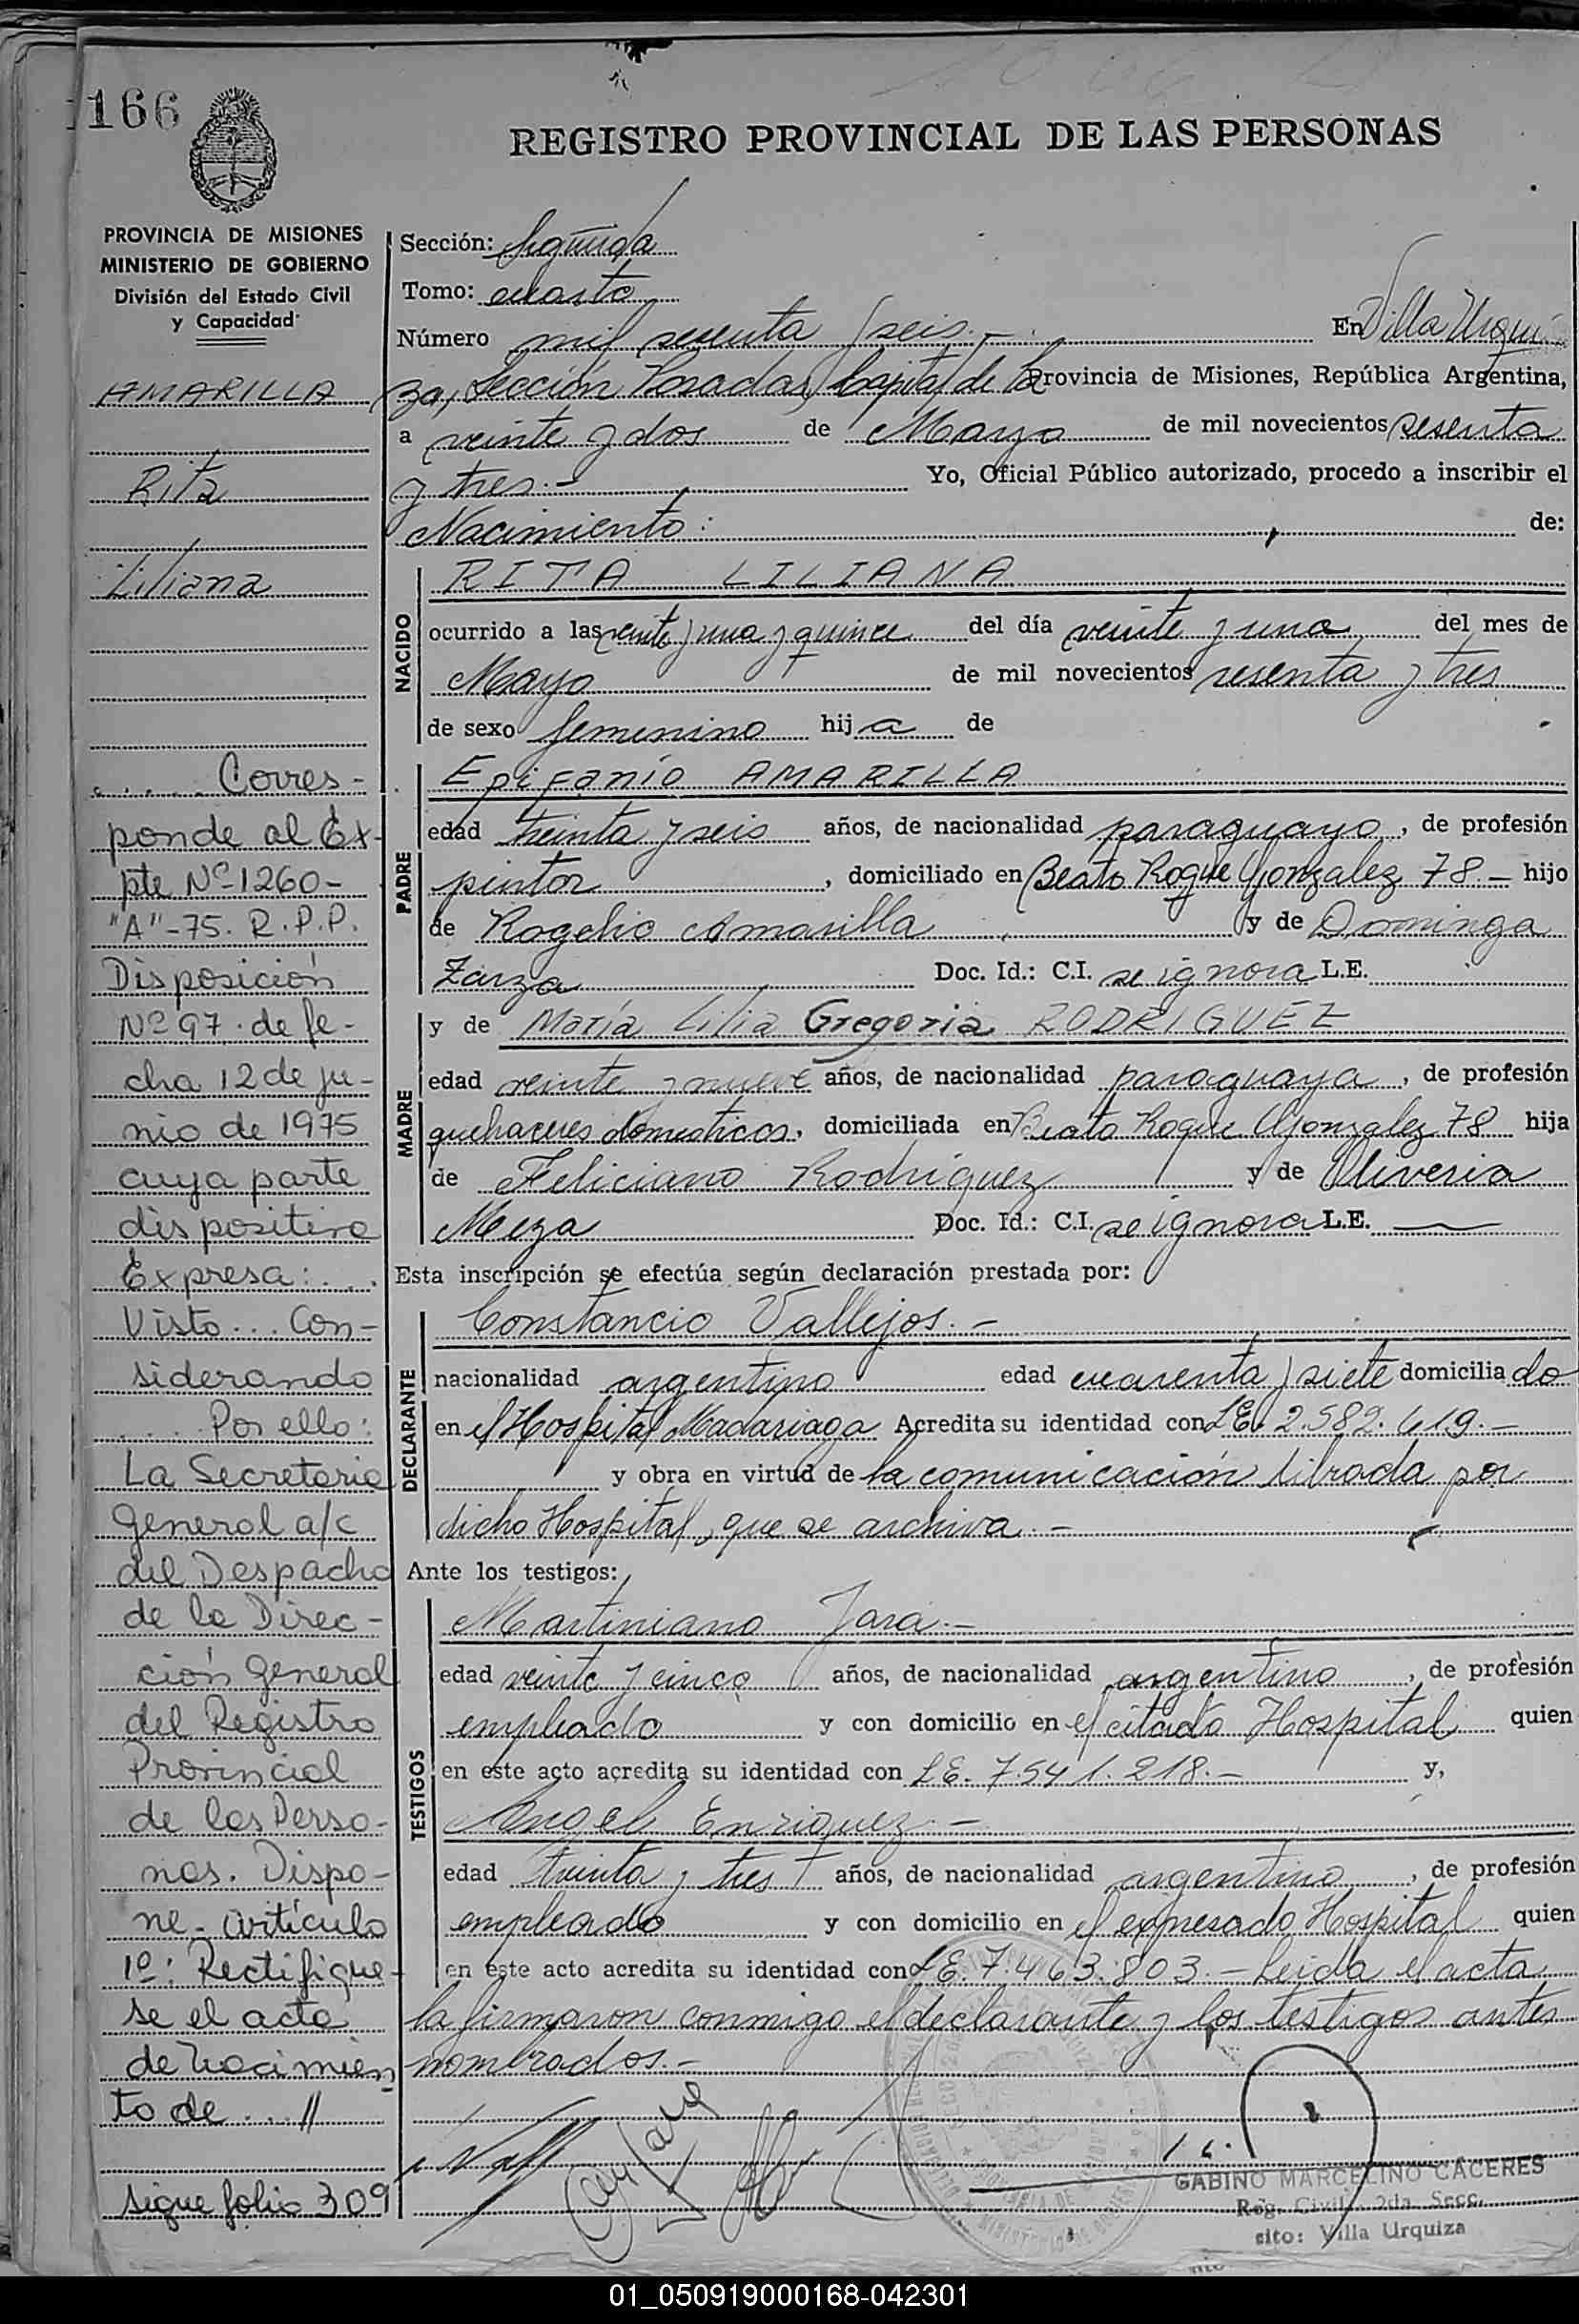 166
REGISTRO PROVINCIAL DE LAS PERSONAS
PROVINCIA DE MISIONES
MINISTERIO DE GOBIERNO
División del Estado Civil
y Capacidad
AMARILLA
Rita
Liliana
Corres-
ponde al Ex-
pte Nº-1260-
"A"-75. R.P.P.
Disposición
Nº 97. de fe-
cha 12 de ju-
nio de 1975
cuya parte
dispositiva
Expresa: . .
Visto... Con-
siderando
..... Por ello:
La Secretaria
General a/c
del Despacho
de la Direc-
ción General
del Registro
Provincial
de las Perso-
nas. Dispo-
ne- Artículo
1º: Rectifique-
se el acta
de Nacimien
to de... //
sigue folio 309
Sección: Segunda
Tomo: cuarto
Número mil sesenta y seis.- En Villa Urqui
za, Sección Posadas, Capital de la Provincia de Misiones, República Argentina,
a veinte y dos de Mayo de mil novecientos sesenta
y tres.- Yo, Oficial Público autorizado, procedo a inscribir el
Nacimiento: de:
NACIDO
RITA LILIANA
ocurrido a las veinte y una y quince del día veinte y uno del mes de
Mayo de mil novecientos sesenta y tres
de sexo femenino hija de
PADRE
Epifanio AMARILLA
edad treinta y seis años, de nacionalidad paraguayo, de profesión
pintor, domiciliado en Beato Roque Gonzalez 78.- hijo
de Rogelio Amarilla y de Dominga
Zarza Doc. Id.: C.I. se ignora L.E.
MADRE
y de María Lilia Gregoria RODRIGUEZ
edad veinte y nueve años, de nacionalidad paraguaya, de profesión
quehaceres domesticos, domiciliada en Beato Roque Gonzalez 78 hija
de Feliciano Rodriguez y de Oliveria
Meza Doc. Id.: C.I. se ignora L.E. —
Esta inscripción se efectúa según declaración prestada por:
DECLARANTE
Constancio Vallejos.-
nacionalidad argentino edad cuarenta y siete domiciliado
en el Hospital Madariaga Acredita su identidad con L.E. 2.582.619.-
y obra en virtud de la comunicación librada por
dicho Hospital, que se archiva.-
Ante los testigos:
TESTIGOS
Martiniano Jara.-
edad veinte y cinco años, de nacionalidad argentino, de profesión
empleado y con domicilio en el citado Hospital quien
en este acto acredita su identidad con L.E. 7.541.218.- y,
Angel Enriquez.-
edad treinta y tres años, de nacionalidad argentino, de profesión
empleado y con domicilio en el expresado Hospital quien
en este acto acredita su identidad con L.E. 7.463.803.- Leida el acta
la firmaron conmigo el declarante y los testigos antes
nombrados.-
GABINO MARCELINO CACERES
Reg. Civil 2da. Secc.
sito: Villa Urquiza
01_050919000168-042301